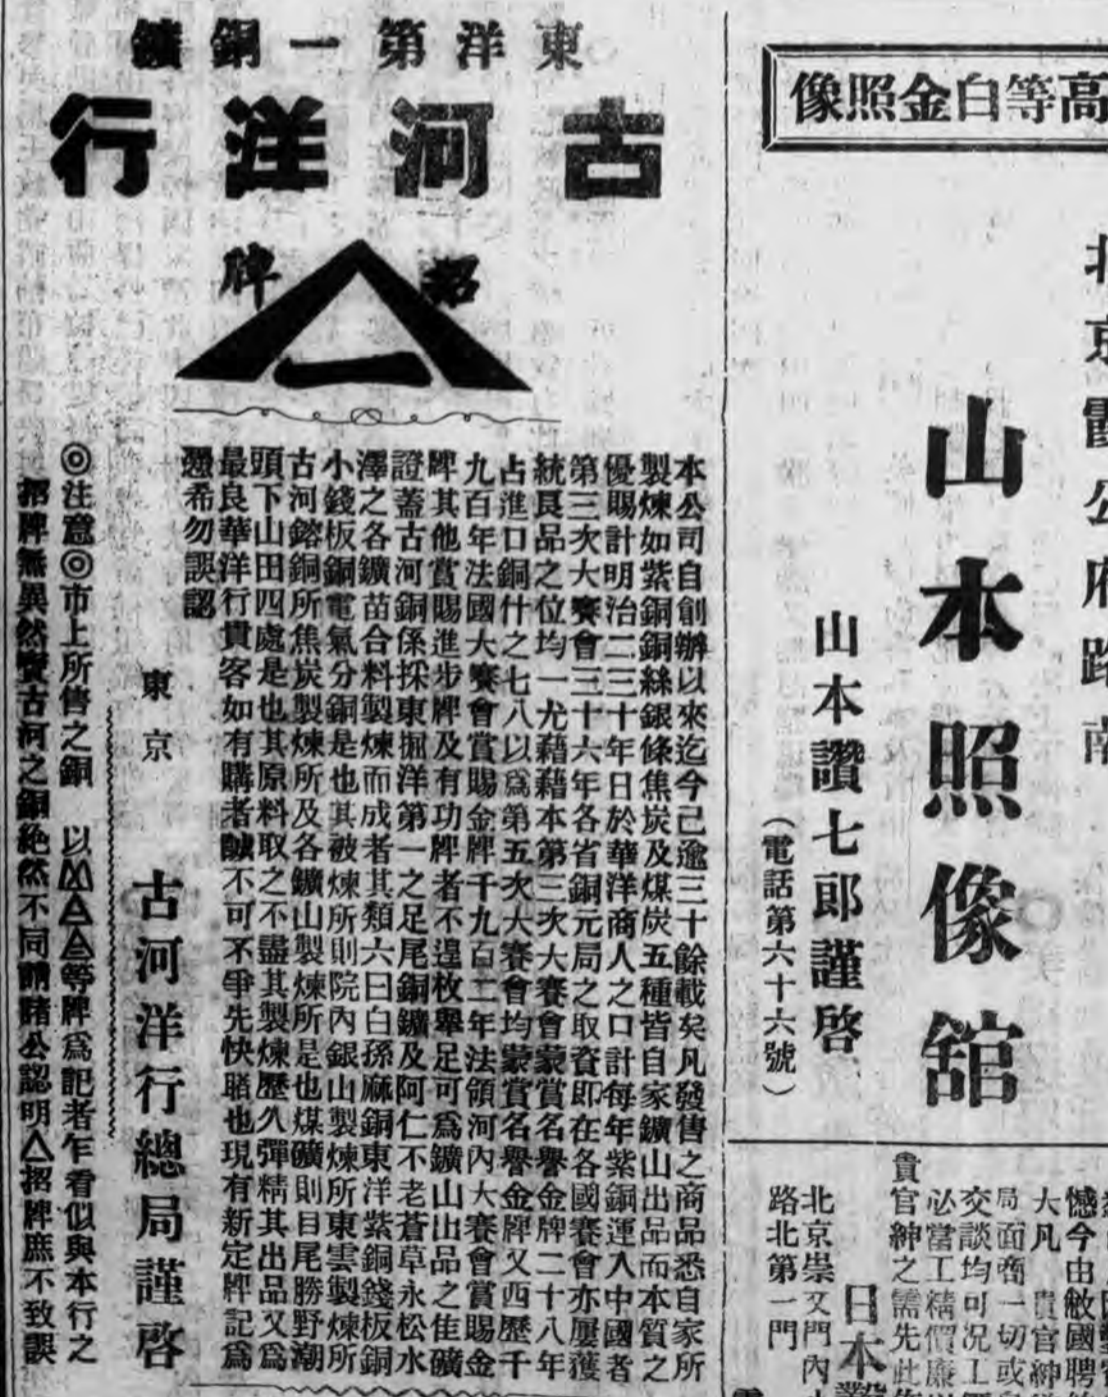 高等白金照像
北京霞公府路南
山本照像舘
山本讚七郎謹啓
（電話第六十六號）
憾今由敝國聘
大凡 貴官紳
局面商一切或
交談均可况工
必當工精價廉
貴官紳之需先此
日本
北京崇文門內
路北第一門
東洋第一銅鑛
古河洋行
招牌
一
本公司自創辦以來迄今己逾三十餘載矣凡發售之商品悉自家所
製煉如紫銅銅絲銀條焦炭及煤炭五種皆自家鑛山出品而本質之
優賜計明治二三十年日於華洋商人之口計每年紫銅運入中國者
第三次大賽會三十六年各省銅元局之取資即在各國賽會亦屢獲
統艮品之位均一尤藉藉本第三次大賽會蒙賞名譽金牌二十八年
占進口銅什之七八以爲第五次大賽會均蒙賞名譽金牌又西歷千
九百年法國大賽會賞賜金牌千九百二年法領河內大賽會賞賜金
牌其他賞賜進步牌及有功牌者不遑枚舉足可爲鑛山出品之隹礦
證蓋古河銅係採東掘洋第一之足尾銅鑛及阿仁不老蒼草永松水
澤之各鑛苗合料製煉而成者其類六曰白孫麻銅東洋紫銅錢板銅
小錢板銅電氣分銅是也其被煉所則院內銀山製煉所東雲製煉所
古河鎔銅所焦炭製煉所及各鑛山製煉所是也煤礦則目尾勝野潮
頭下山田四處是也其原料取之不盡其製煉歷久彈精其出品又爲
最良華洋行貴客如有購者誠不可不爭先快睹也現有新定牌記爲
憑希勿誤認
東京 古河洋行總局謹啓
◎注意◎市上所售之銅 以等牌爲記者乍看似與本行之
招牌無異然實古河之銅絶然不同請諸公認明招牌庶不致誤